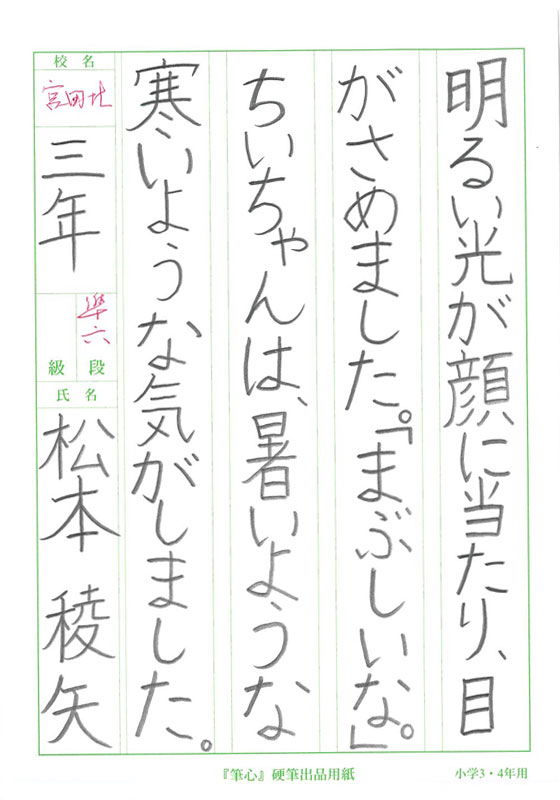 明るい光が顔に当たり、目
がさめました。「まぶしいな。」
ちいちゃんは、暑いような
寒いような気がしました。
校名
宮田北
三年
準六
級 段
氏名
松本 稜矢
『筆心』硬筆出品用紙
小学3・4年用